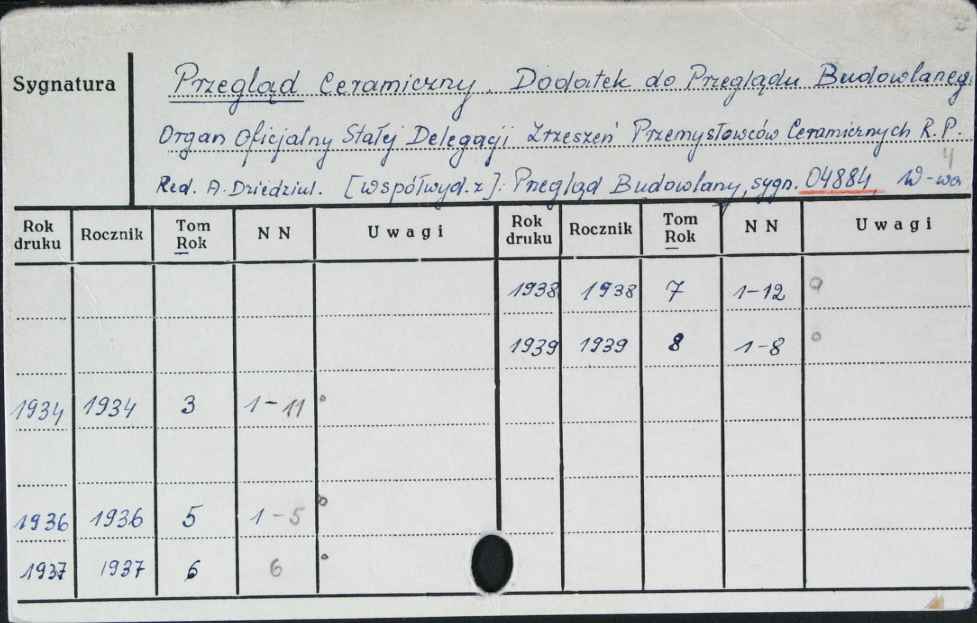 Sygnatura
Przegląd Ceramiczny. Dodatek do Przeglądu Budowlaneg
Organ Oficjalny Stałej Delegacji Zrzeszeń Przemysłowców Ceramicznych R.P.
4
Red. A. Dziedziul. [współwyd. z]: Przegląd Budowlany, sygn. 04884 W-wa
Rok druku Rocznik Tom Rok NN Uwagi Rok druku Rocznik Tom Rok NN Uwagi
1938 1938 7 1-12
1939 1939 8 1-8
1934 1934 3 1-11
1936 1936 5 1-5
1937 1937 6 6